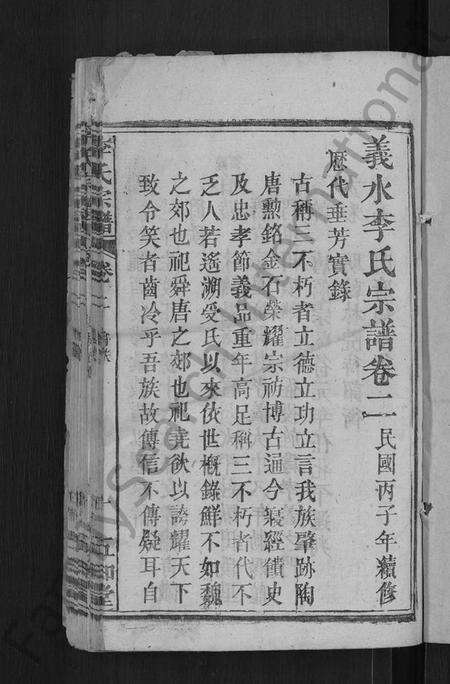 義水李氏宗譜卷二 民國丙子年續修
歷代垂芳實錄
古稱三不朽者立德立功立言我族肇跡陶
唐勲銘金石榮耀宗祊博古通今寢經饋史
及忠孝節義品重年高足稱三不朽者代不
乏人若遙溯受氏以來依世概錄鮮不如魏
之郊也祀舜唐之郊也祀堯欲以誇耀天下
致令笑者齒冷乎吾族故傳信不傳疑耳自
李氏宗譜 卷二